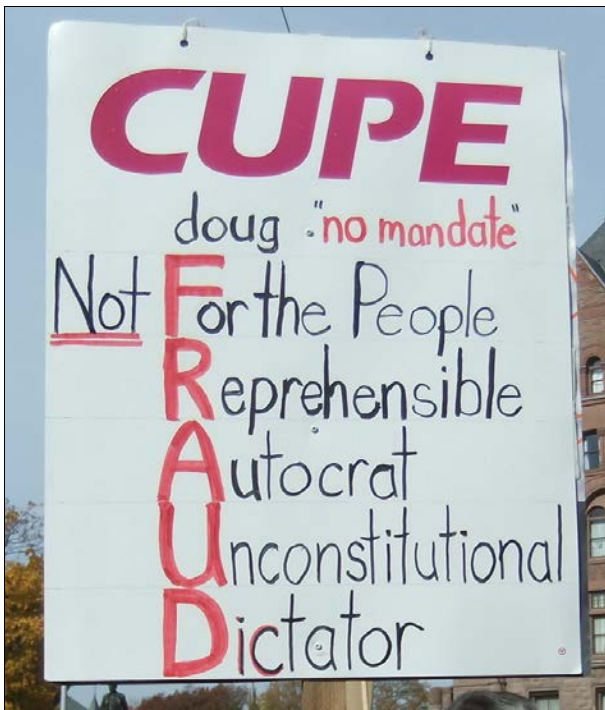 CUPE
doug "no mandate"
Not For the People
Reprehensible
Autocrat
Unconstitutional
Dictator